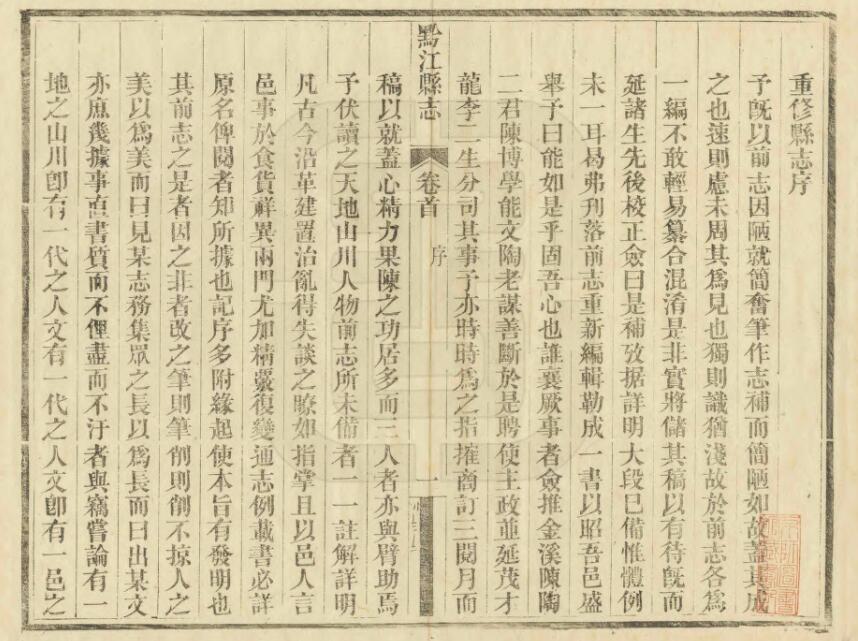 重修縣志序
予旣以前志因陋就簡奮筆作志補而簡陋如故蓋其成
之也速則慮未周其爲見也獨則識猶淺故於前志各爲
一編不敢輕易纂合混淆是非實將儲其稿以有待旣而
延諸生先後校正僉曰是補攷据詳明大段已備惟體例
未一耳曷弗刋落前志重新編輯勒成一書以昭吾邑盛
舉予曰能如是乎固吾心也誰襄厥事者僉推金溪陳陶
二君陳博學能文陶老謀善斷於是聘使主政並延茂才
龍李二生分司其事予亦時時爲之指摧商訂三閱月而
黔江縣志 卷首 序 一
稿以就蓋心精力果陳之功居多而三人者亦與臂助焉
予伏讀之天地山川人物前志所未備者一一註解詳明
凡古今沿革建置治亂得失談之瞭如指掌且以邑人言
邑事於食貨祥異兩門尤加精覈復變通志例載書必詳
原名俾閱者知所據也記序多附緣起使本旨有發明也
其前志之是者因之非者改之筆則筆削則削不掠人之
美以爲美而曰見某志務集眾之長以爲長而曰出某文
亦庶幾據事直書質而不俚盡而不汙者與竊嘗論有一
地之山川卽有一代之人文有一代之人文卽有一邑之